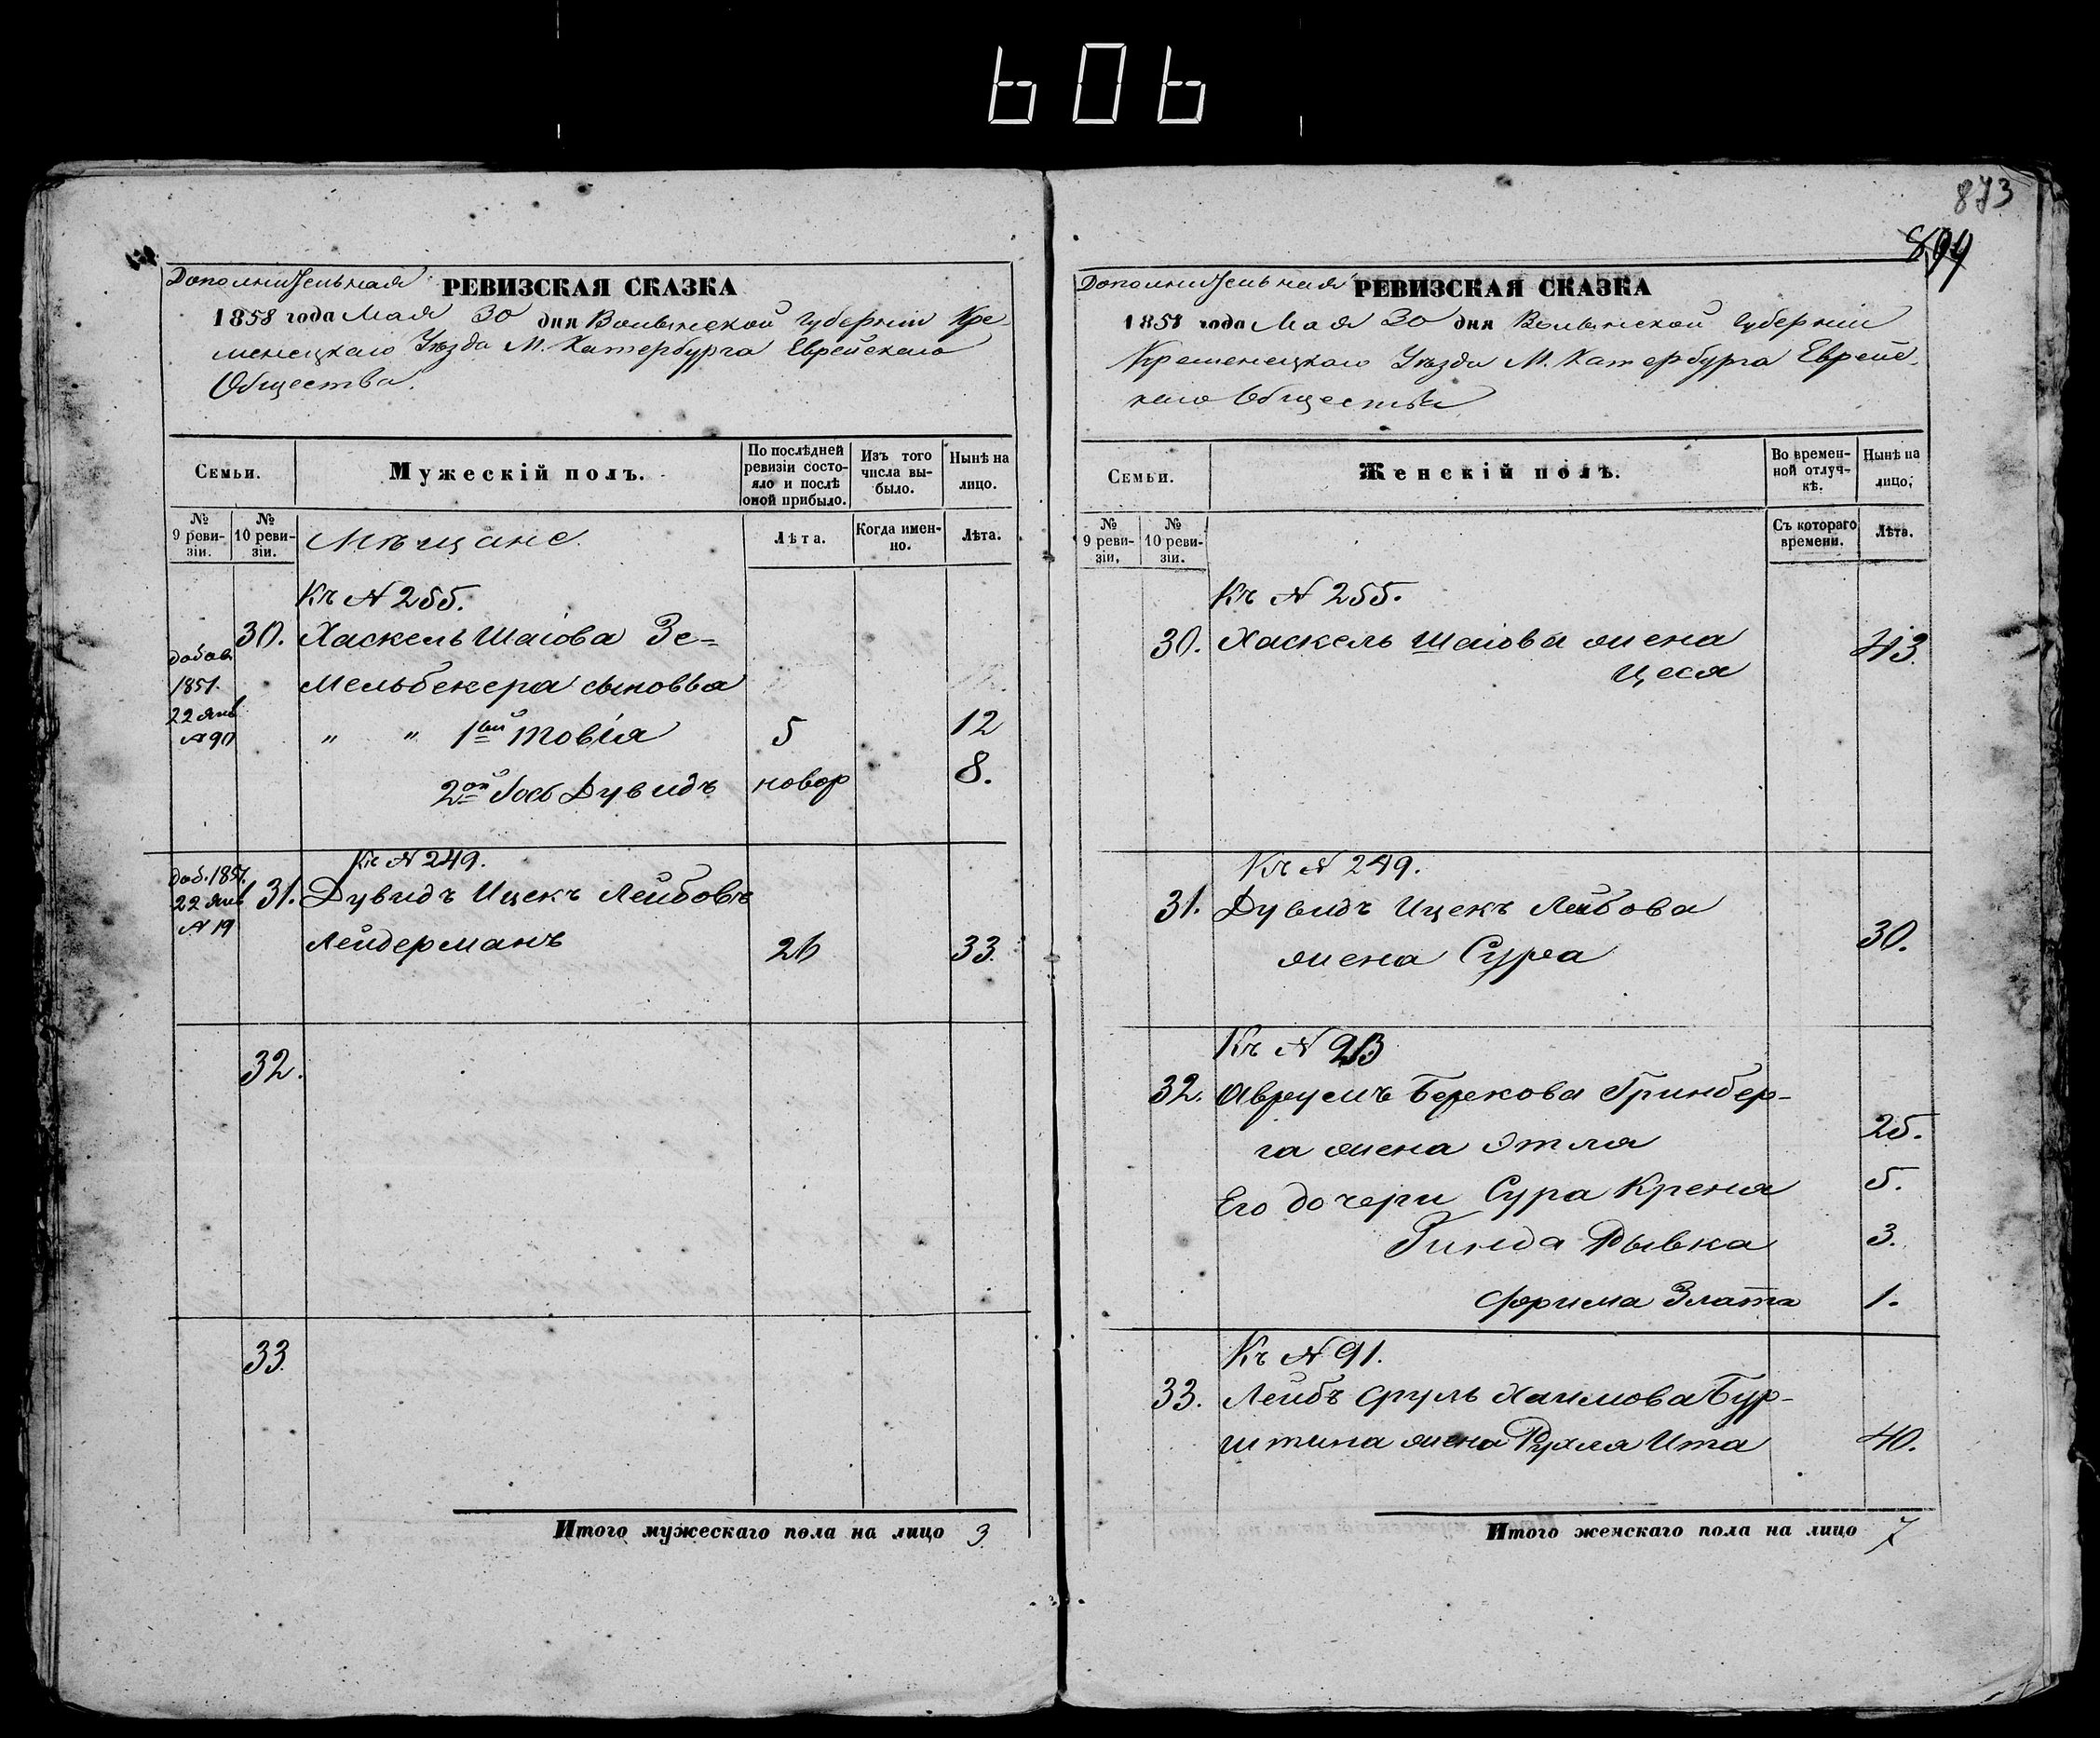 606
873
899
Дополнительная РЕВИЗСКАЯ СКАЗКА
1858 года Мая 30 дня Волынской Губерніи Кре-
менецкаго Уѣзда М. Катербурга Еврейскаго
Общества.
Семьи.
Мужескій полъ.
По послѣдней ревизіи состо-яло и послѣ оной прибыло.
Изъ того числа вы-было.
Нынѣ на лицо.
№ 9 реви-зіи.
№ 10 реви-зіи.
Мѣщане.
Лѣта.
Когда имен-но.
Лѣта.
Къ № 255.
30. Хаскель Шаіова Зе=
добав. 1851. 22 Янв № 90
мельбекера сыновья
" " 1ый Товія 5 12
2ой Іось Дувидъ новор 8.
Къ № 249.
доб. 1851. 22 Янв № 19
31. Дувидъ Ицекъ Лейбовъ
Лейдерманъ 26 33.
32.
33.
Итого мужескаго пола на лицо 3.
Дополнительная РЕВИЗСКАЯ СКАЗКА
1858 года Мая 30 дня Волынской Губерніи
Кременецкаго Уѣзда М. Катербурга Еврейс
каго Общества
Семьи.
Женскій полъ.
Во времен-ной отлуч-кѣ.
Нынѣ на лицо.
№ 9 реви-зіи.
№ 10 реви-зіи.
Съ котораго времени.
Лѣта.
Къ № 255.
30. Хаскель Шаіова жена 43.
Цеся
Къ № 249.
31. Дувидъ Ицекъ Лейбова
жена Сура 30.
Къ №
32. Аврумъ Берекова Гринбер-
га жена Этля 25.
Его дочери Сура Креня 5.
Гинда Рывка 3.
Фрима Злата 1.
Къ № 91.
33. Лейбъ Сруль Хаимова Бур-
штина жена Рухля Ита 40.
Итого женскаго пола на лицо 7